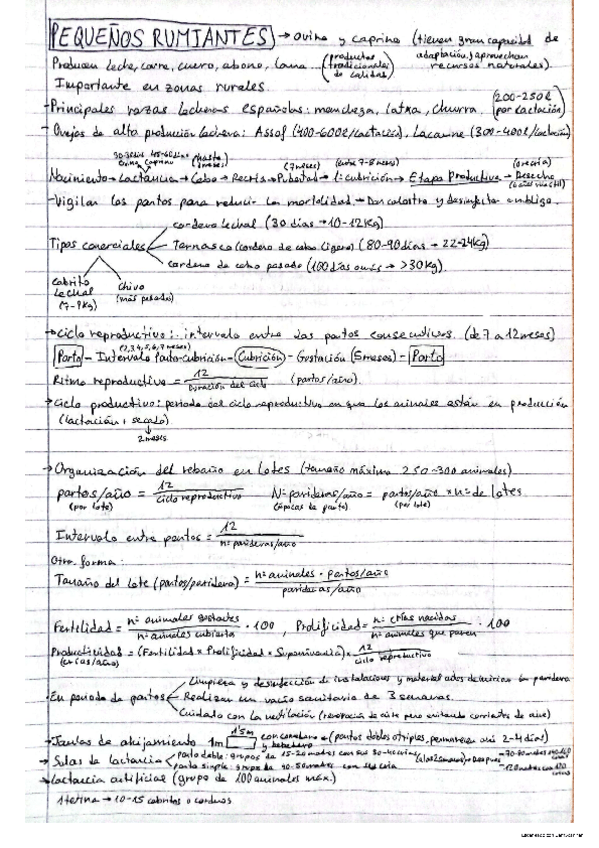 PEQUEÑOS RUMIANTES → ovino y caprino (tienen gran capacidad de
adaptación, aprovechan
Producen leche, carne, cuero, abono, lana... (productos tradicionales de calidad) recursos naturales).
Importante en zonas rurales.
- Principales razas lecheras españolas: manchega, latxa, churra. (200-250l por lactación)
- Ovejas de alta producción lechera: Assaf (400-600l/lactación), Lacaune (300-400l/lactación)
30-35 días ovino 45-60 días caprino (7 meses) (entre 7-8 meses)
Nacimiento → Lactancia → Cebo → Recría → Pubertad → 1ª cubrición → Etapa Productiva → Desecho
- Vigilar los partos para reducir la mortalidad → Dar calostro y desinfectar ombligo.
cordero lechal (30 días → 10-12Kg)
Tipos comerciales Ternasco (cordero de cebo ligero) (80-90 días → 22-24Kg)
cordero de cebo pesado (100 días o más → >30Kg).
Cabrito lechal (7-9Kg)
Chivo (más pesado)
→ Ciclo reproductivo: intervalo entre dos partos consecutivos. (de 7 a 12 meses)
(2,3,4,5,6,7 meses)
Parto - Intervalo Parto-cubrición - Cubrición - Gestación (5 meses) - Parto
Ritmo reproductivo = 12 / Duración del ciclo (partos/año).
→ Ciclo productivo: periodo del ciclo reproductivo en que los animales están en producción
(lactación + secado)
2 meses
→ Organización del rebaño en lotes (tamaño máximo 250-300 animales)
partos/año = 12 / ciclo reproductivo Nº parideras/año = partos/año × nº de lotes
(por lote) (épocas de parto) (por lote)
Intervalo entre partos = 12 / nº parideras/año
Otra forma:
Tamaño del lote (partos/paridera) = nº animales · partos/año / parideras/año
Fertilidad = nº animales gestantes / nº animales cubiertos · 100, Prolificidad = nº crías nacidas / nº animales que paren · 100
Productividad = (Fertilidad × Prolificidad × Supervivencia) × 12 / ciclo reproductivo
(crías/año)
Limpieza y desinfección de instalaciones y material antes de iniciar la paridera
· En periodo de partos Realizar un vacío sanitario de 3 semanas.
Cuidado con la ventilación (renovación de aire pero evitando corrientes de aire)
→ Jaulas de ahijamiento 1m 1'5m con comedero y bebedero (partos dobles o triples, permanecen ahí 2-4 días)
→ Salas de lactancia parto doble: grupos de 15-20 madres con sus 30-40 crías
parto simple: grupo de 40-50 madres con su cría
→ Lactancia artificial (grupo de 100 animales máx.)
1 tetina → 10-15 cabritos o corderos